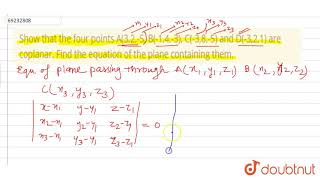 69232808
x₁, y₁, z₁ x₂, y₂, z₂ x₃ y₃ z₃
Show that the four points A(3,2,-5) B(-1,4,-3), C(-3,8,-5) and D(-3,2,1) are
coplanar. Find the equation of the plane containing them.
Equn of plane passing through A(x₁, y₁, z₁) B(x₂, y₂, z₂)
C(x₃, y₃, z₃)
| x-x₁ y-y₁ z-z₁ |
| x₂-x₁ y₂-y₁ z₂-z₁ | = 0
| x₃-x₁ y₃-y₁ z₃-z₁ |
doubtnut